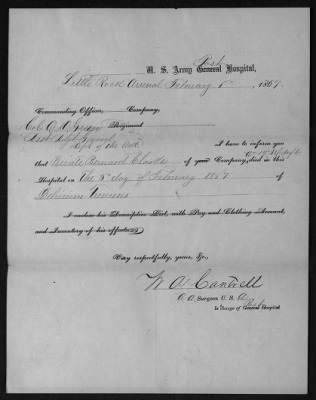 Post
U. S. Army General Hospital,
Little Rock Arsenal February 5th, 1867.
Commanding Officer, Company,
Regiment
Dept of the Ark
I have to inform you
that Private Bernard of your Company, died in this
Hospital on the 5th day of February 1867 of
Delirium Tremens
I enclose his Descriptive List, with Pay and Clothing Account,
and Inventory of his effects.
Very respectfully, yours, &c.,
W. A. Cantrell
A. A. Surgeon U. S. A.
Post
In Charge of General Hospital